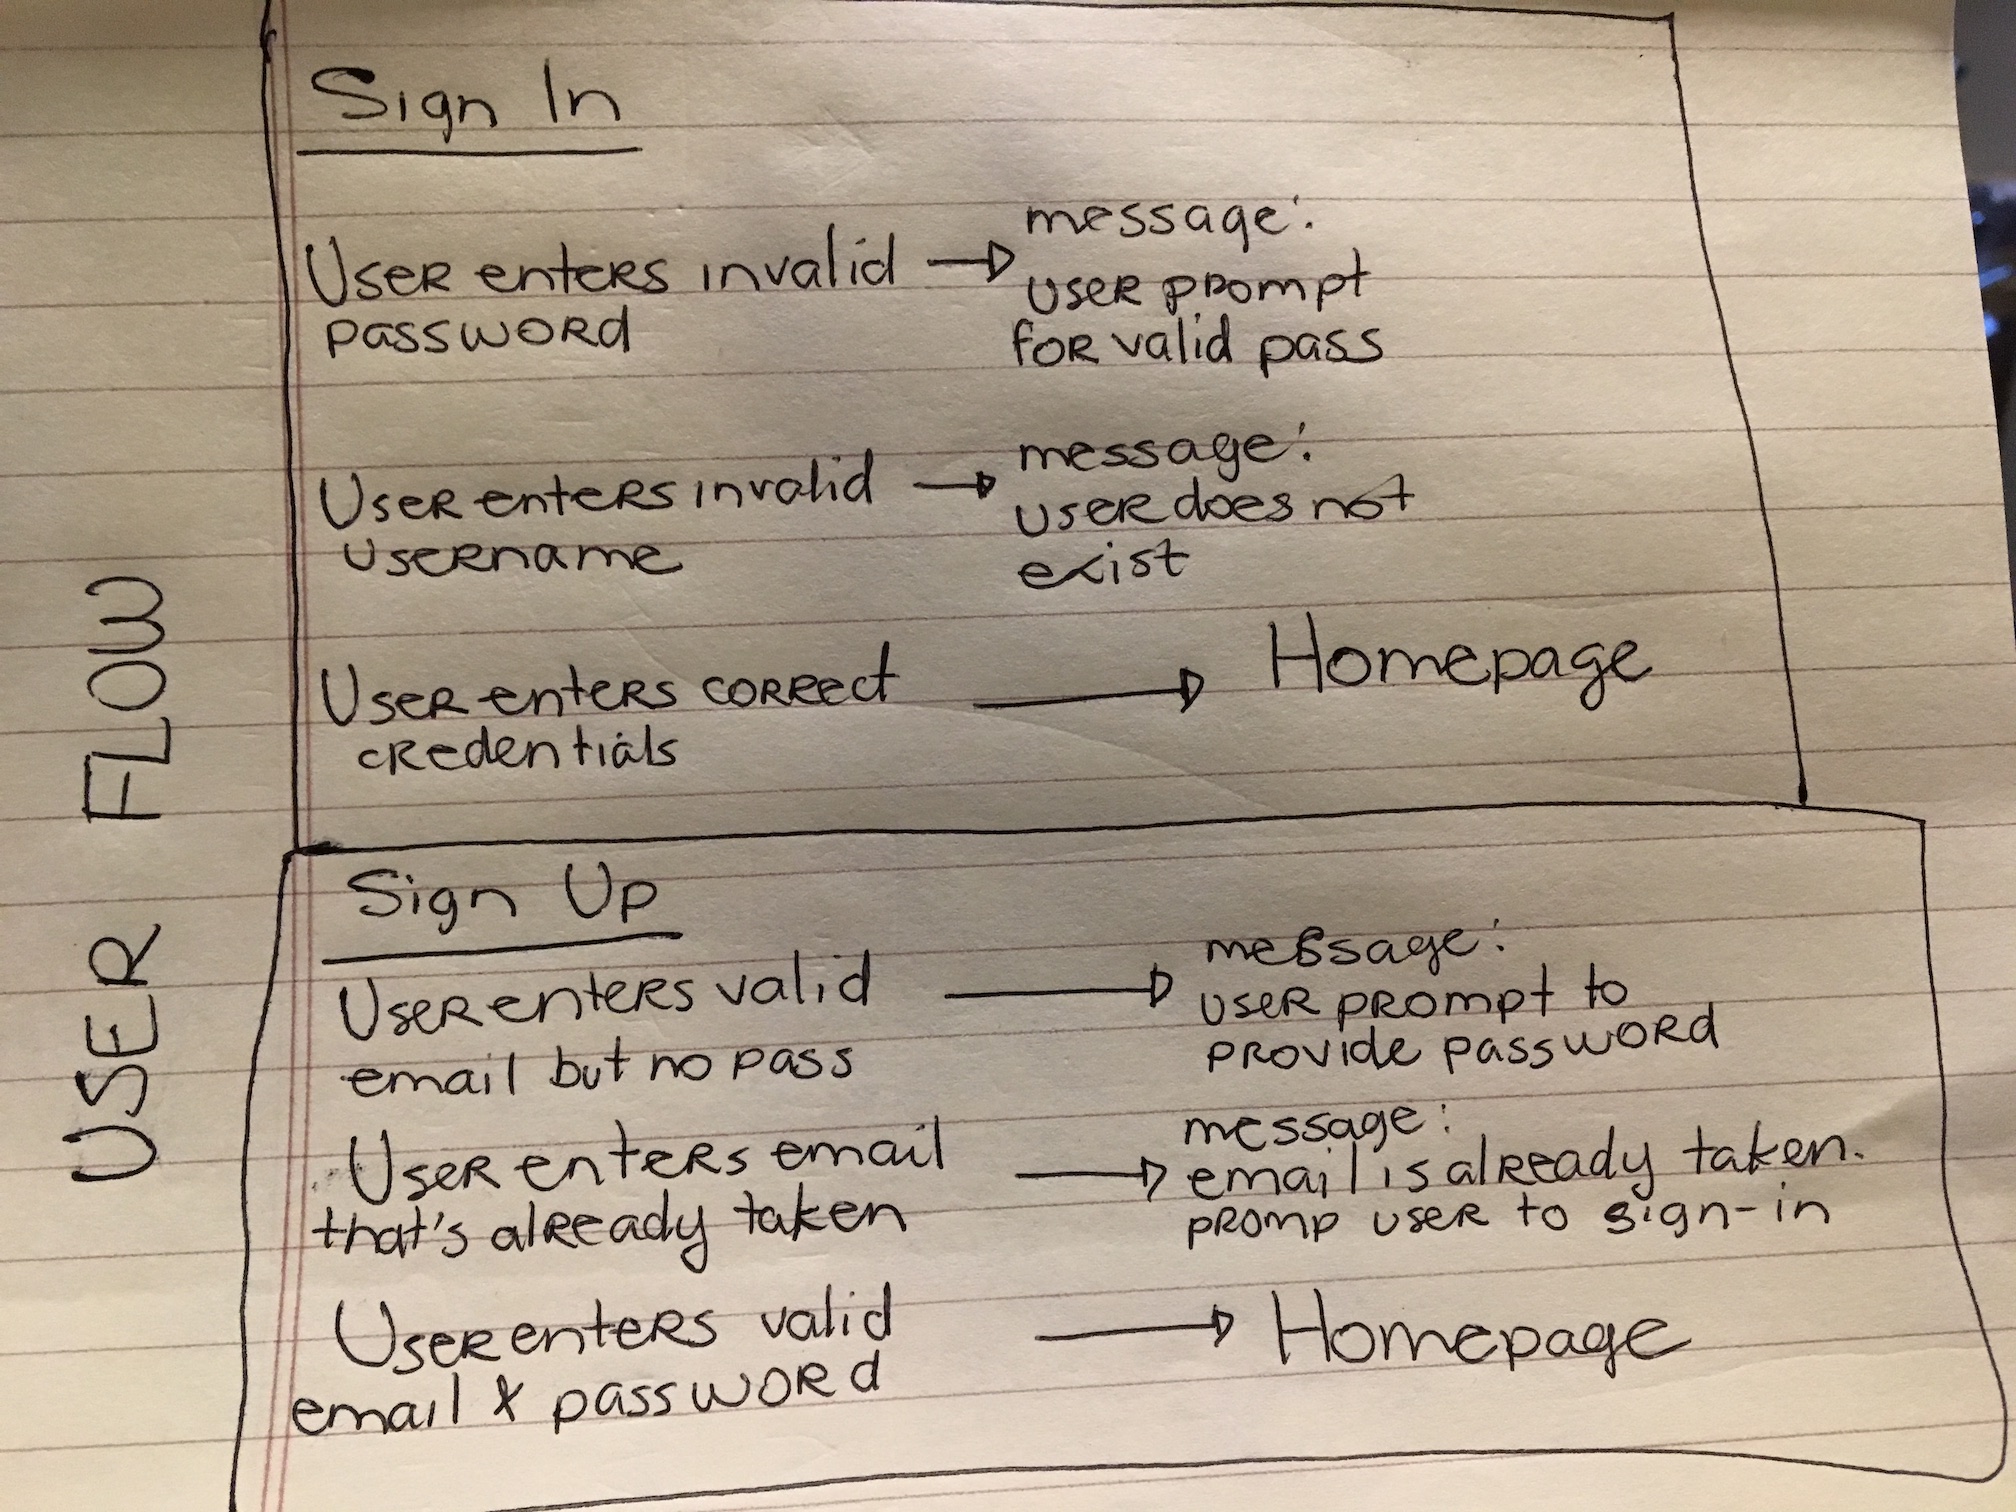 USER FLOW
Sign In
User enters invalid
password
message:
user prompt
for valid pass
User enters invalid
username
message:
user does not
exist
User enters correct
credentials
Homepage
Sign Up
User enters valid
email but no pass
message:
user prompt to
provide password
User enters email
that's already taken
message:
email is already taken.
promp user to sign-in
User enters valid
email & password
Homepage